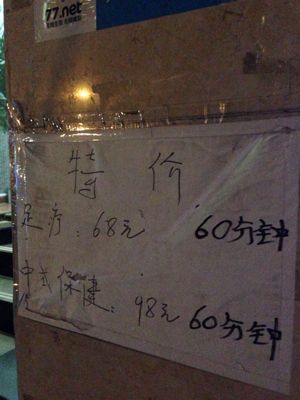 77.net
特价
足疗：68元 60分钟
中式保健：98元 60分钟